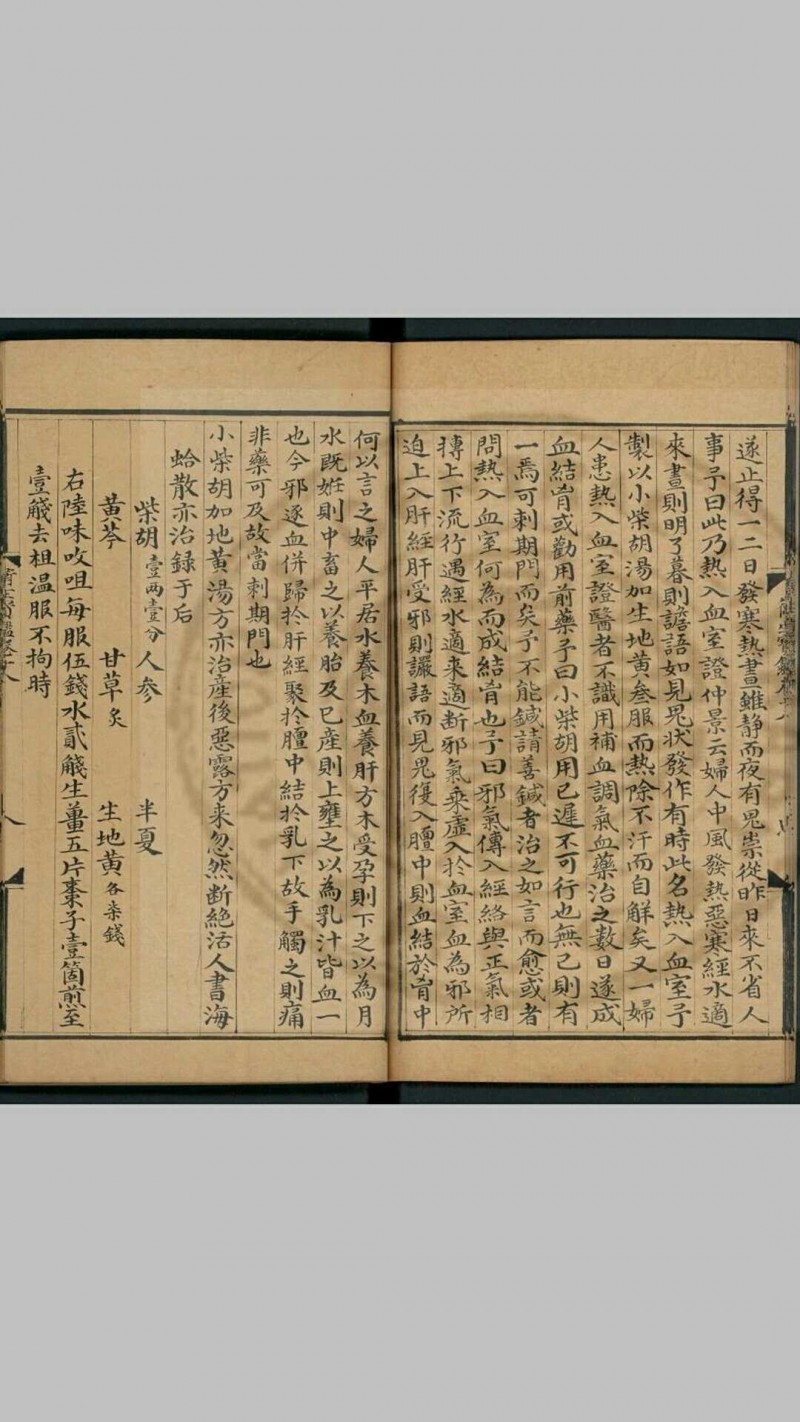 遂止得一二日發寒熱晝雖静而夜有鬼祟從昨日來不省人
事予曰此乃熱入血室證仲景云婦人中風發熱惡寒經水適
來晝則明了暮則譫語如見鬼状發作有時此名熱入血室予
製以小柴胡湯加生地黄叁服而熱除不汗而自解矣又一婦
人患熱入血室證醫者不識用補血調氣血藥治之数日遂成
血結胷或勸用前藥予曰小柴胡用已遲不可行也無已則有
一焉可刺期門而矣予不能鍼請善鍼者治之如言而愈或者
問熱入血室何為而成結胷也予曰邪氣傳入經絡與正氣相
摶上下流行遇經水適来適断邪氣乘虛入於血室血為邪所
迫上入肝經肝受邪則讝語而見鬼復入膻中則血結於胷中
何以言之婦人平居水養木血養肝方木受孕則下之以為月
水既妊則中畜之以養胎及已產則上壅之以為乳汁皆血一
也今邪逐血併歸於肝經聚於膻中結於乳下故手觸之則痛
非藥可及故當刺期門也
小柴胡加地黄湯方亦治產後惡露方来忽然断絶活人書海
蛤散亦治録于后
柴胡壹两壹分 人参 半夏
黄芩 甘草炙 生地黄各柒錢
右陸味㕮咀每服伍錢水貳觥生薑五片棗子壹箇煎至
壹觥去柤温服不拘時